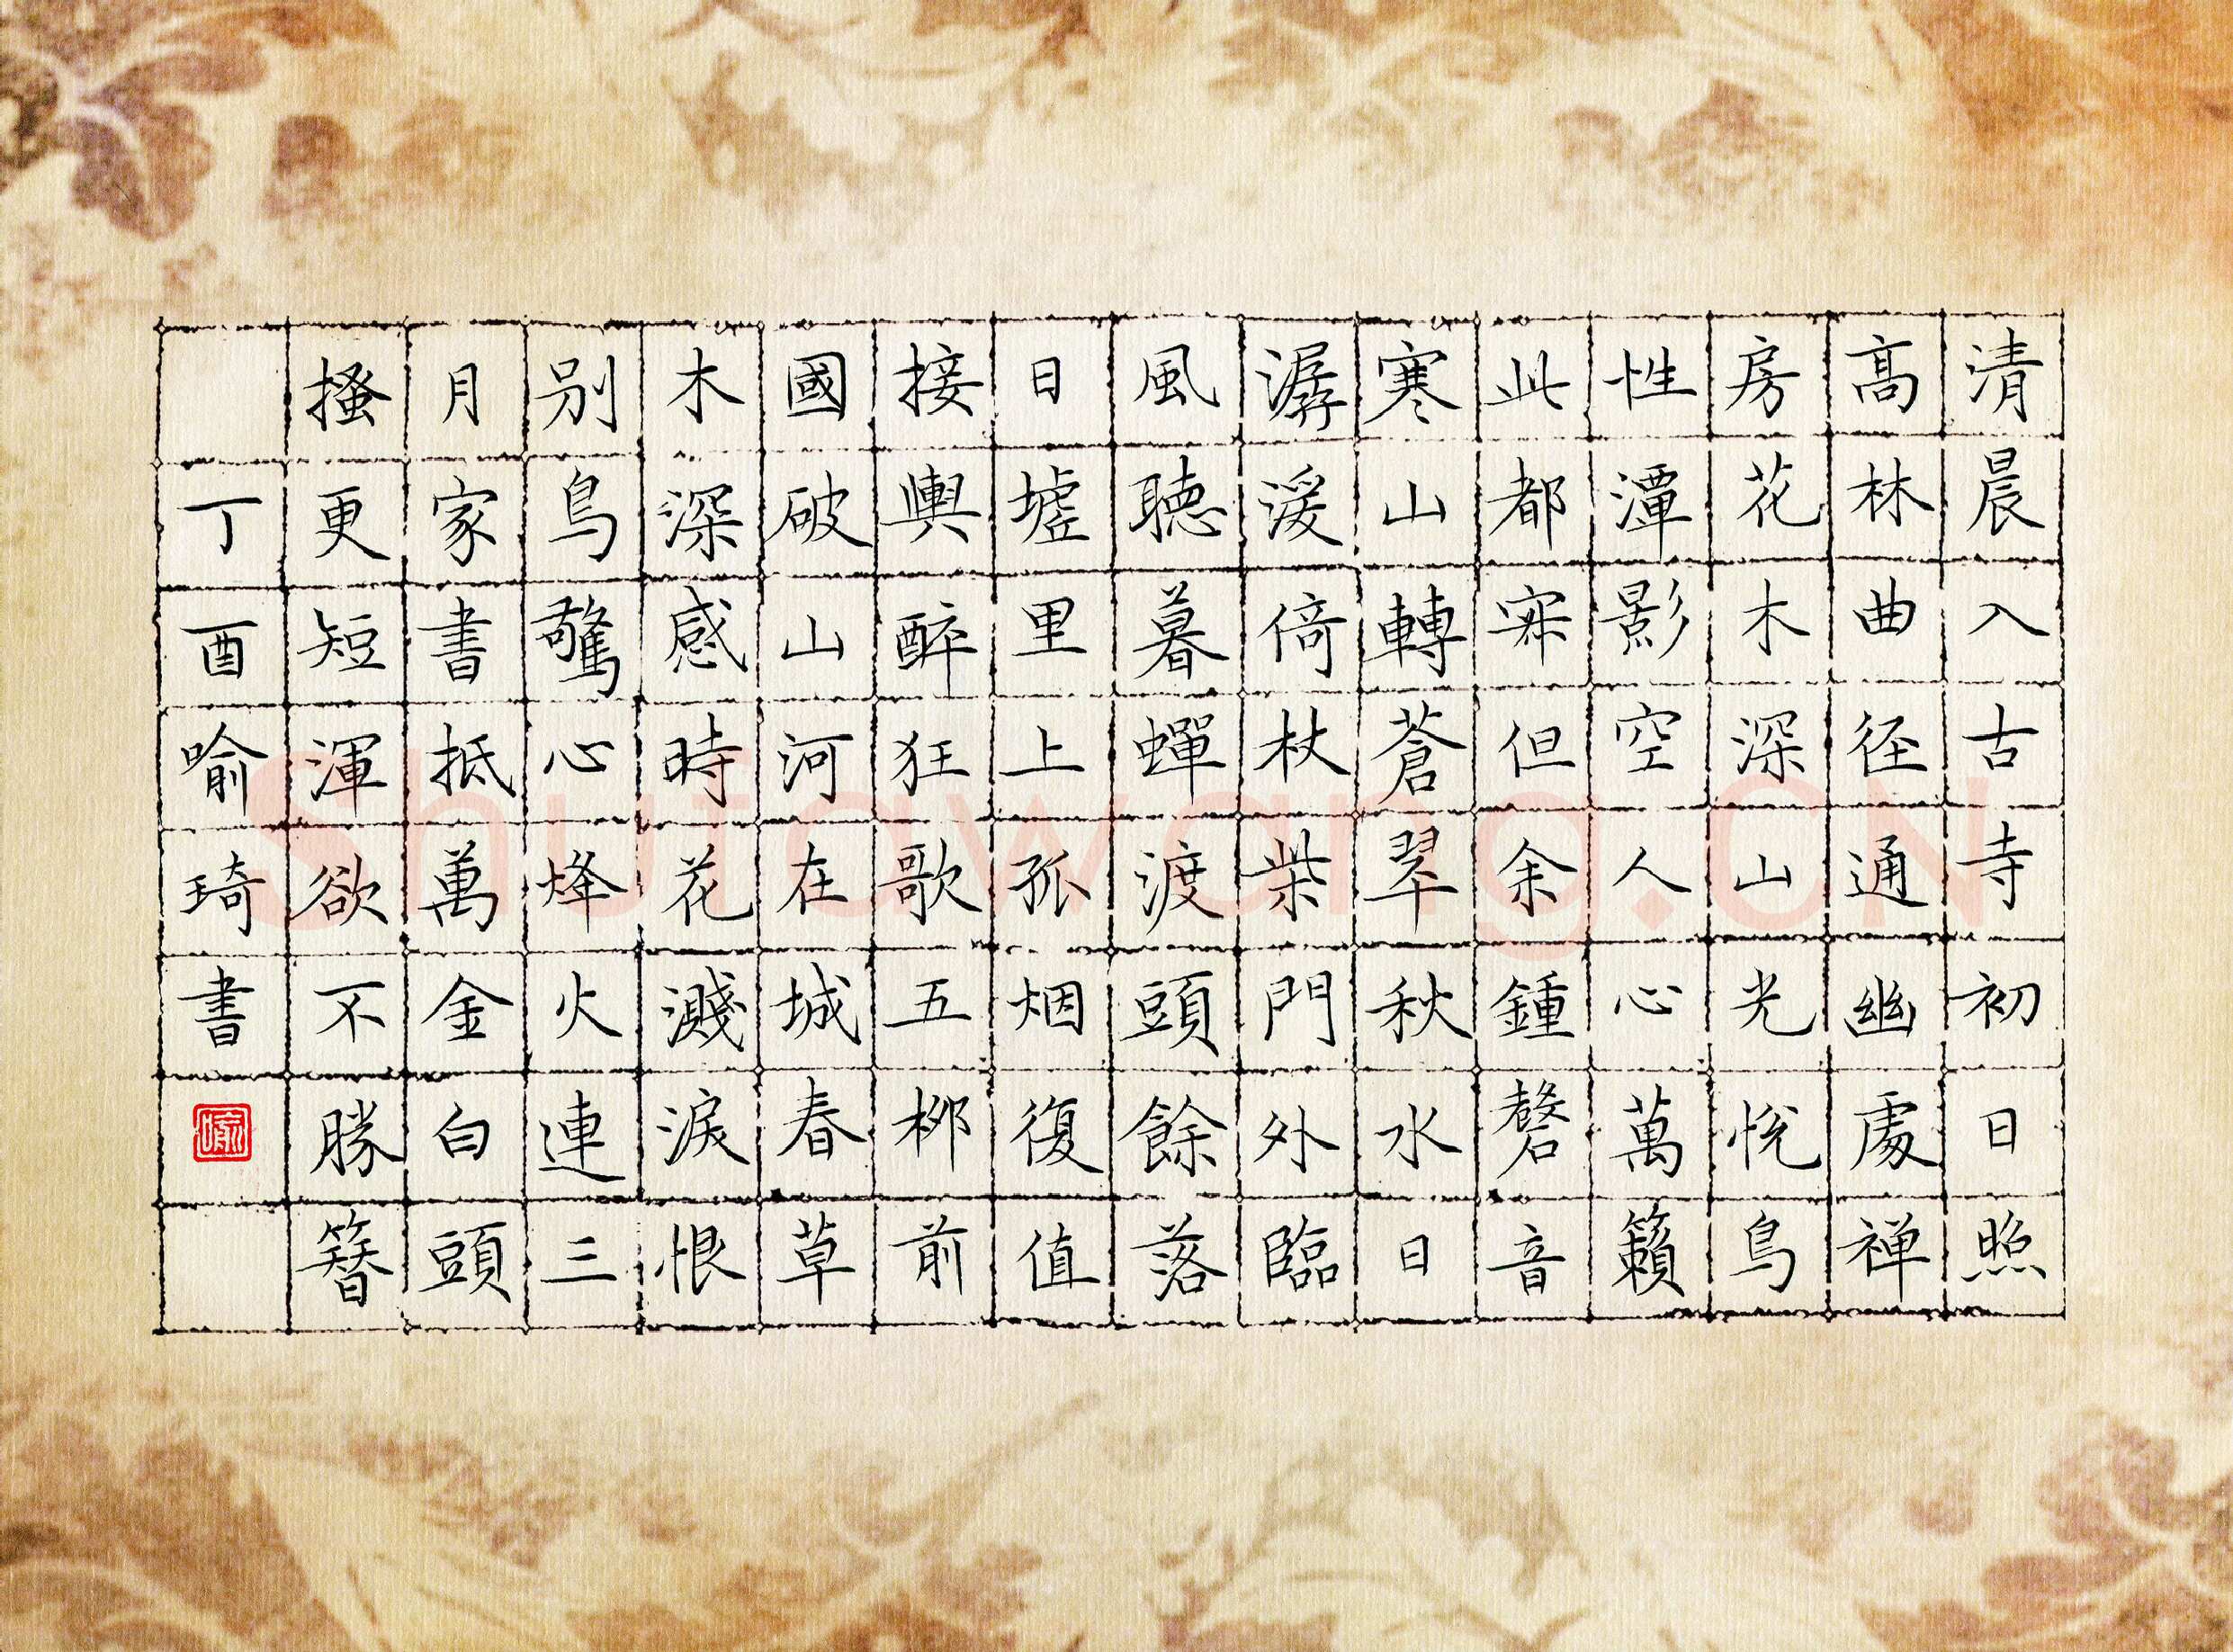 清晨入古寺初日照
髙林曲径通幽處禅
房花木深山光悅鳥
性潭影空人心萬籟
此都寂但余鍾磬音
寒山轉蒼翠秋水日
潺湲倚杖柴門外臨
風聽暮蟬渡頭餘落
日墟里上孤烟復值
接輿醉狂歌五柳前
國破山河在城春草
木深感時花濺淚恨
别鳥驚心烽火連三
月家書抵萬金白頭
搔更短渾欲不勝簪
丁酉喻琦書
喻
Shufawang.CN